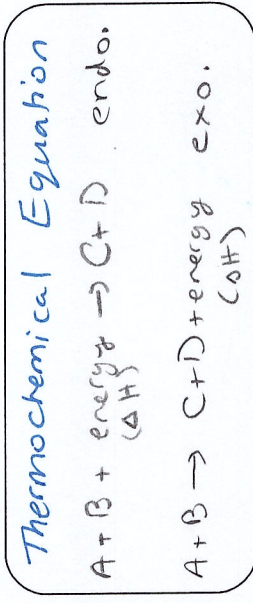 Thermochemical Equation
A + B + energy → C + D endo.
(ΔH)
A + B → C + D + energy exo.
(ΔH)